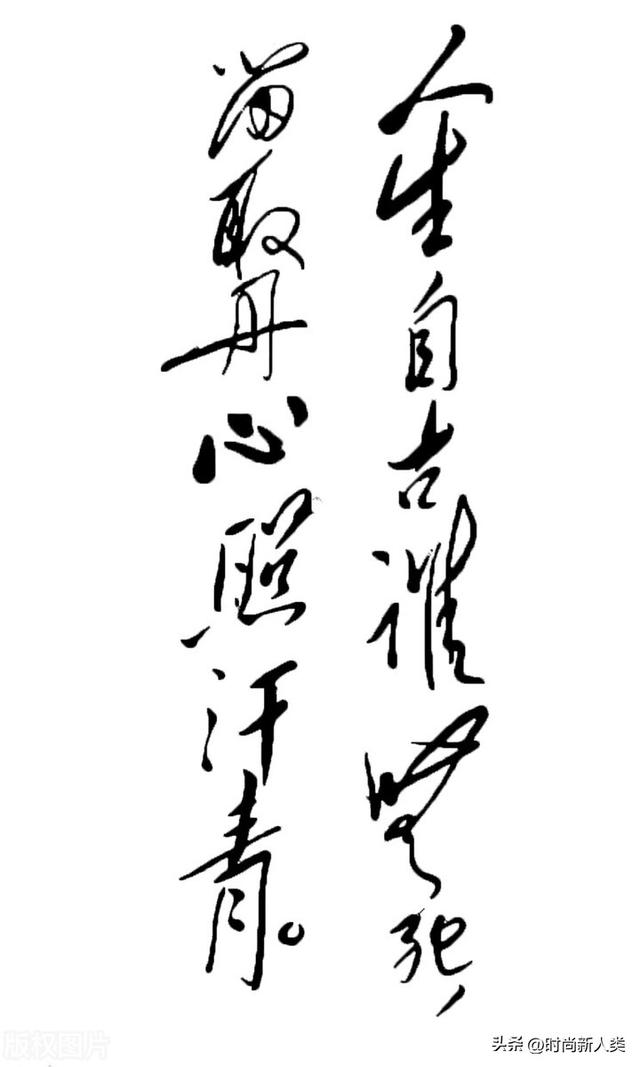 人生自古谁无死，
留取丹心照汗青。
版权图片
头条@时尚新人类